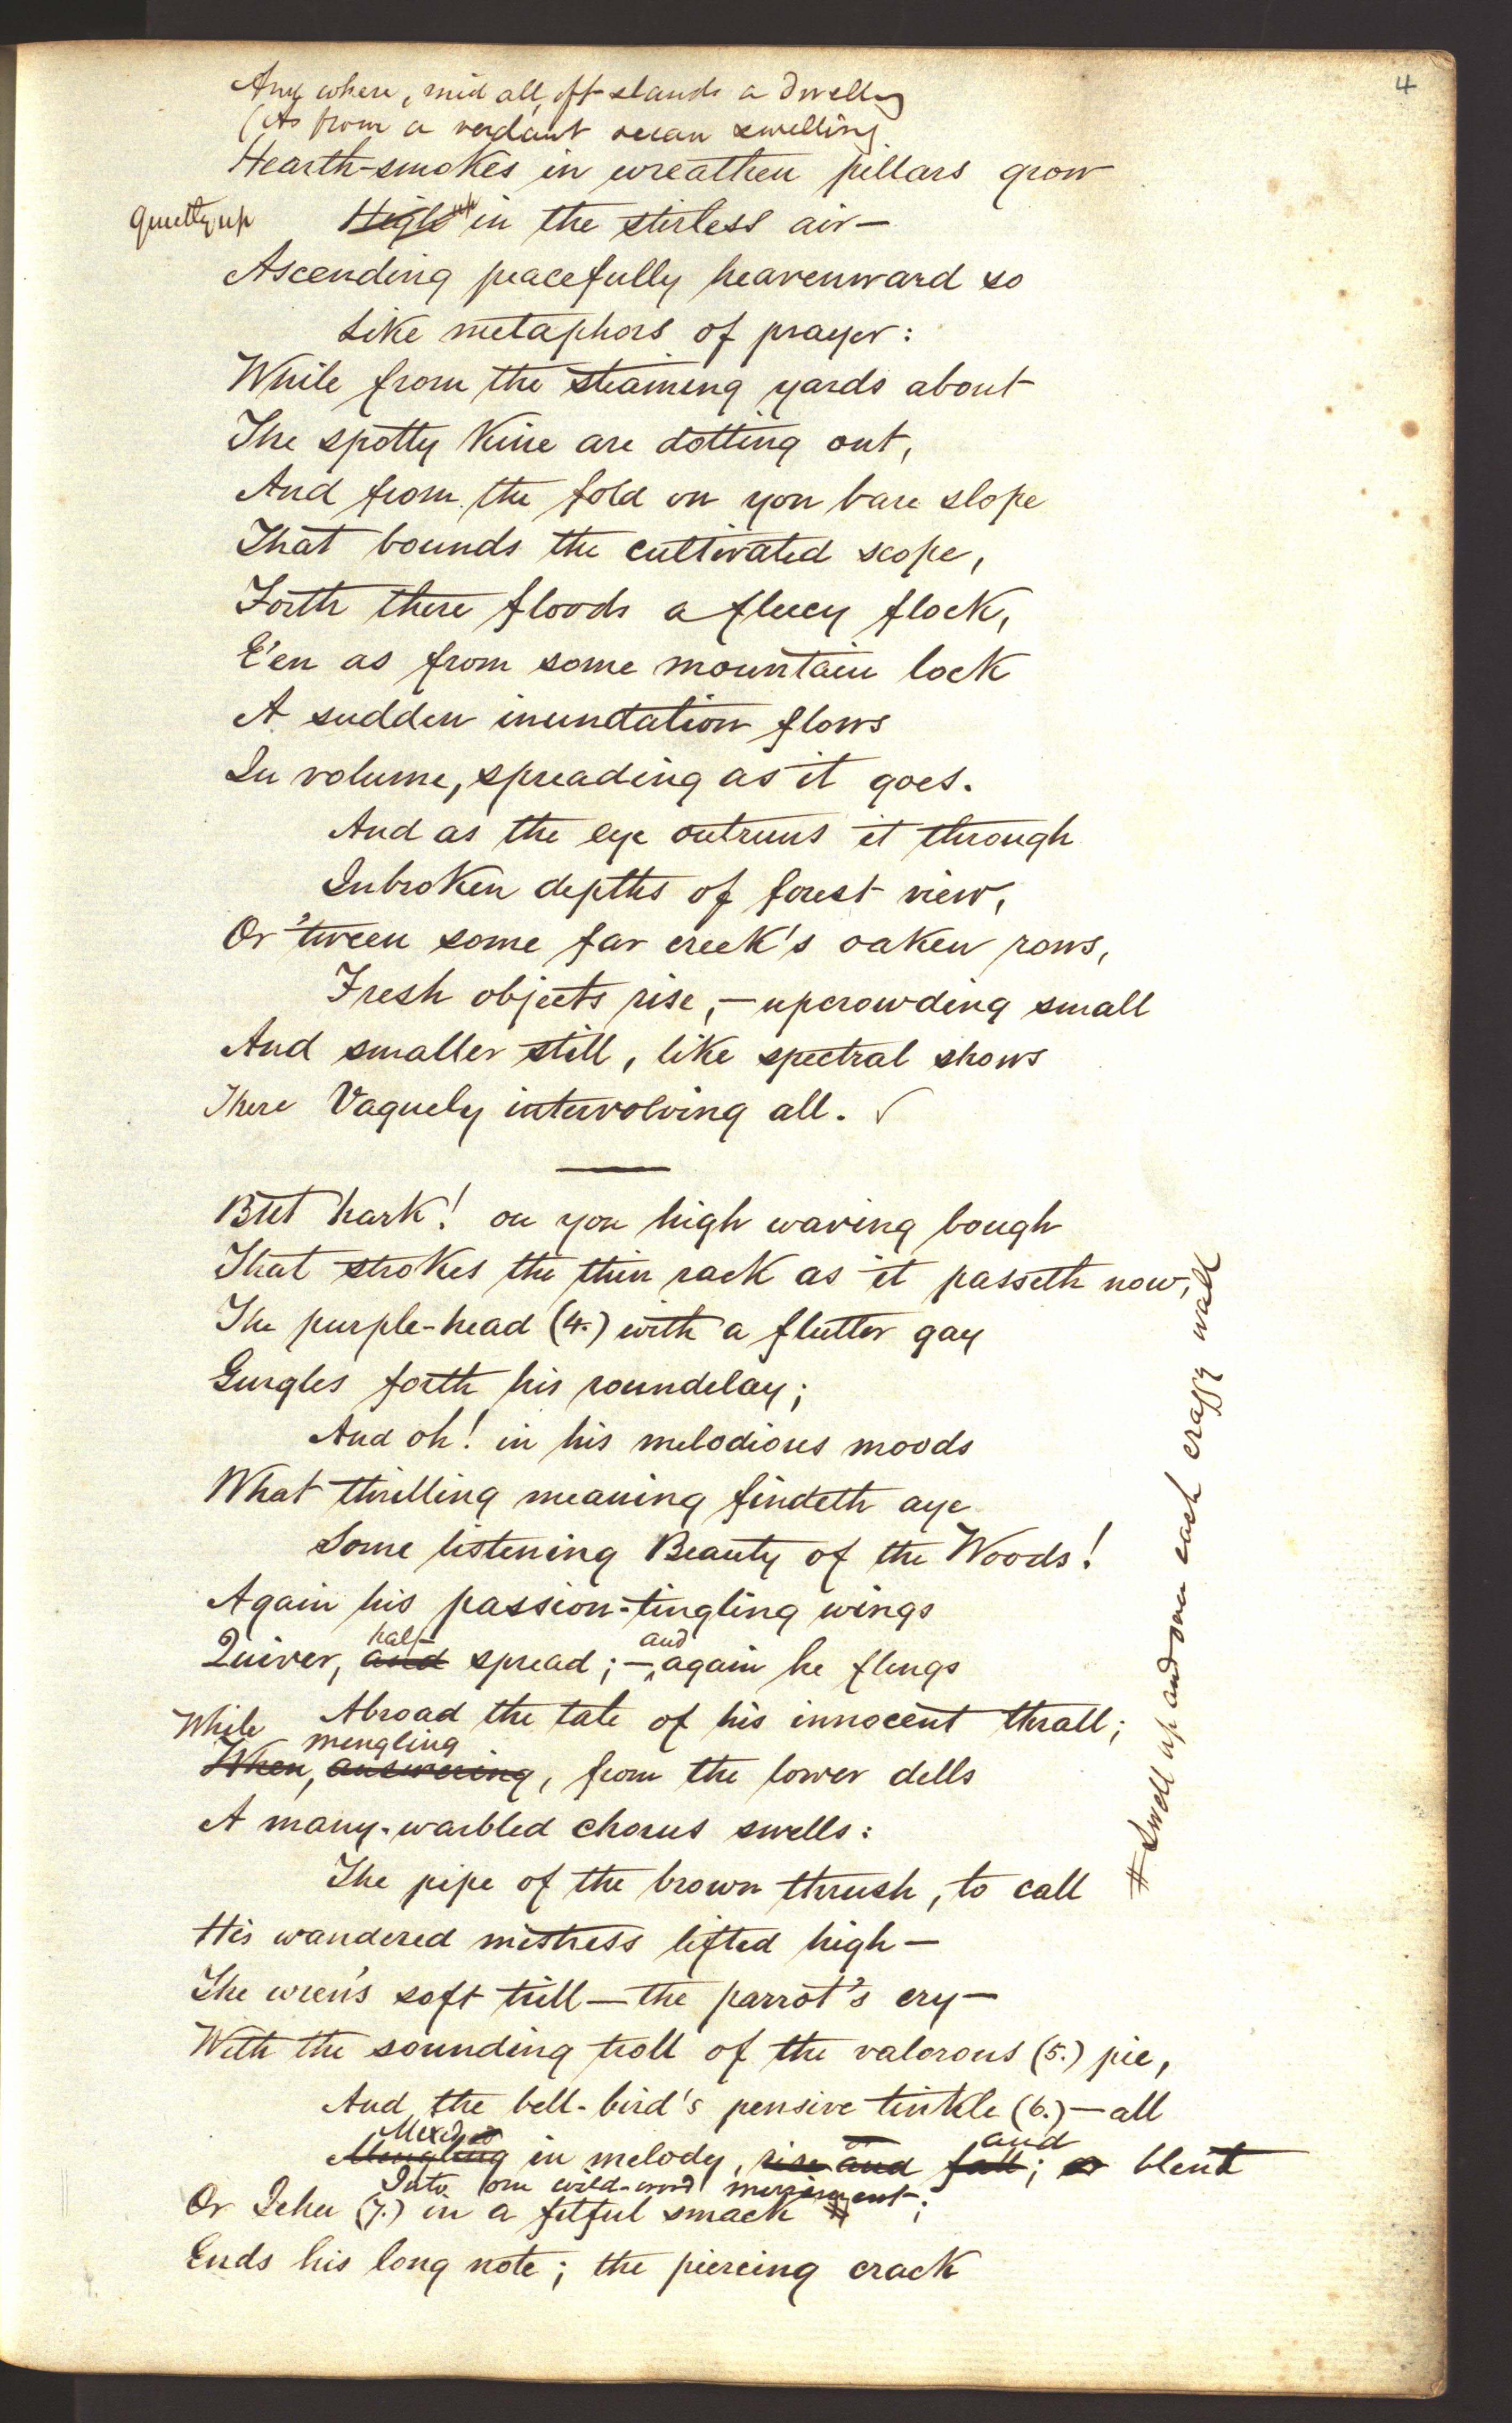 4
And where, mid all, oft stands a dwelling
(As from a verdant ocean swelling
Hearth-smokes in wreathen pillars grow
quietly up High up in the stirless air—
Ascending peacefully heavenward so
Like metaphors of prayer:
While from the steaming yards about
The spotty Kine are dotting out,
And from the fold on yon bare slope
That bounds the cultivated scope,
Forth there floods a fleecy flock,
E'en as from some mountain lock
A sudden inundation flows
In volume, spreading as it goes.
And as the eye outruns it through
Inbroken depths of forest view,
Or 'tween some far creek's oaken rows,
Fresh objects rise,—upcrowding small
And smaller still, like spectral shows
There Vaguely intervolving all. ✓
But hark! on yon high waving bough
That strokes the thin rack as it passeth now,
The purple-head (4.) with a flutter gay
Gurgles forth his roundelay;
And oh! in his melodious moods
What thrilling meaning findeth aye
Some listening Beauty of the Woods!
Again his passion-tingling wings
half- and
Quiver, and spread;—^again he flings
Abroad the tale of his innocent thrall;
While mingling
When, answering, from the lower dells
A many-warbled chorus swells:
The pipe of the brown thrush, to call
His wandered mistress lifted high—
The wren's soft trill—the parrot's cry—
With the sounding troll of the valorous (5.) pie,
And the bell-bird's pensive tinkle (6.)—all
Mixed and
Mingling in melody, rise and fall; or blent
Into one wild-wood merriment;
Or Tchu (7.) in a fitful smack #
Ends his long note; the piercing crack
# Swell up and over each craggy wall